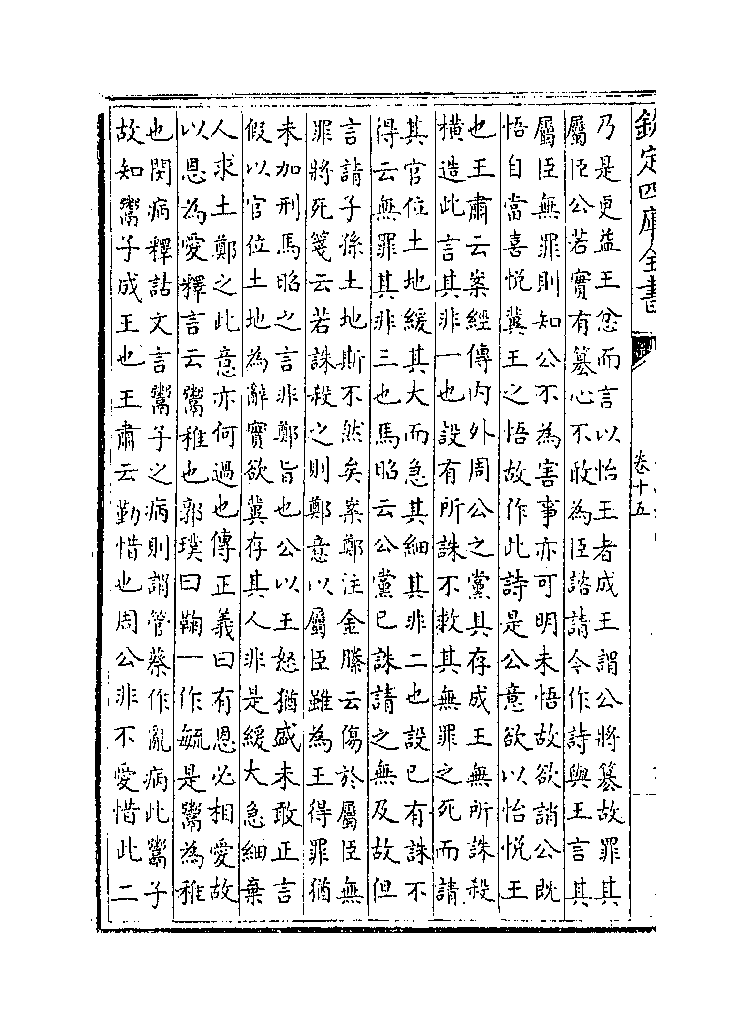 欽定四庫全書
卷十五
乃是更益王忿而言以怡王者成王謂公將簒故罪其
屬臣公若實有簒心不敢為臣諮請今作詩與王言其
屬臣無罪則知公不為害事亦可明未悟故欲誚公既
悟自當喜悅冀王之悟故作此詩是公意欲以怡悅王
也王肅云案經傳內外周公之黨具存成王無所誅殺
橫造此言其非一也設有所誅不救其無罪之死而請
其官位土地緩其大而急其細其非二也設已有誅不
得云無罪其非三也馬昭云公黨已誅請之無及故但
言請子孫土地斯不然矣案鄭注金縢云傷於屬臣無
罪將死箋云若誅殺之則鄭意以屬臣雖為王得罪猶
未加刑馬昭之言非鄭旨也公以王怒猶盛未敢正言
假以官位土地為辭實欲冀存其人非是緩大急細棄
人求土鄭之此意亦何過也傳正義曰有恩必相愛故
以恩為愛釋言云鬻稚也郭璞曰鞠一作毓是鬻為稚
也閔病釋詁文言鬻子之病則誚管蔡作亂病此鬻子
故知鬻子成王也王肅云勤惜也周公非不愛惜此二